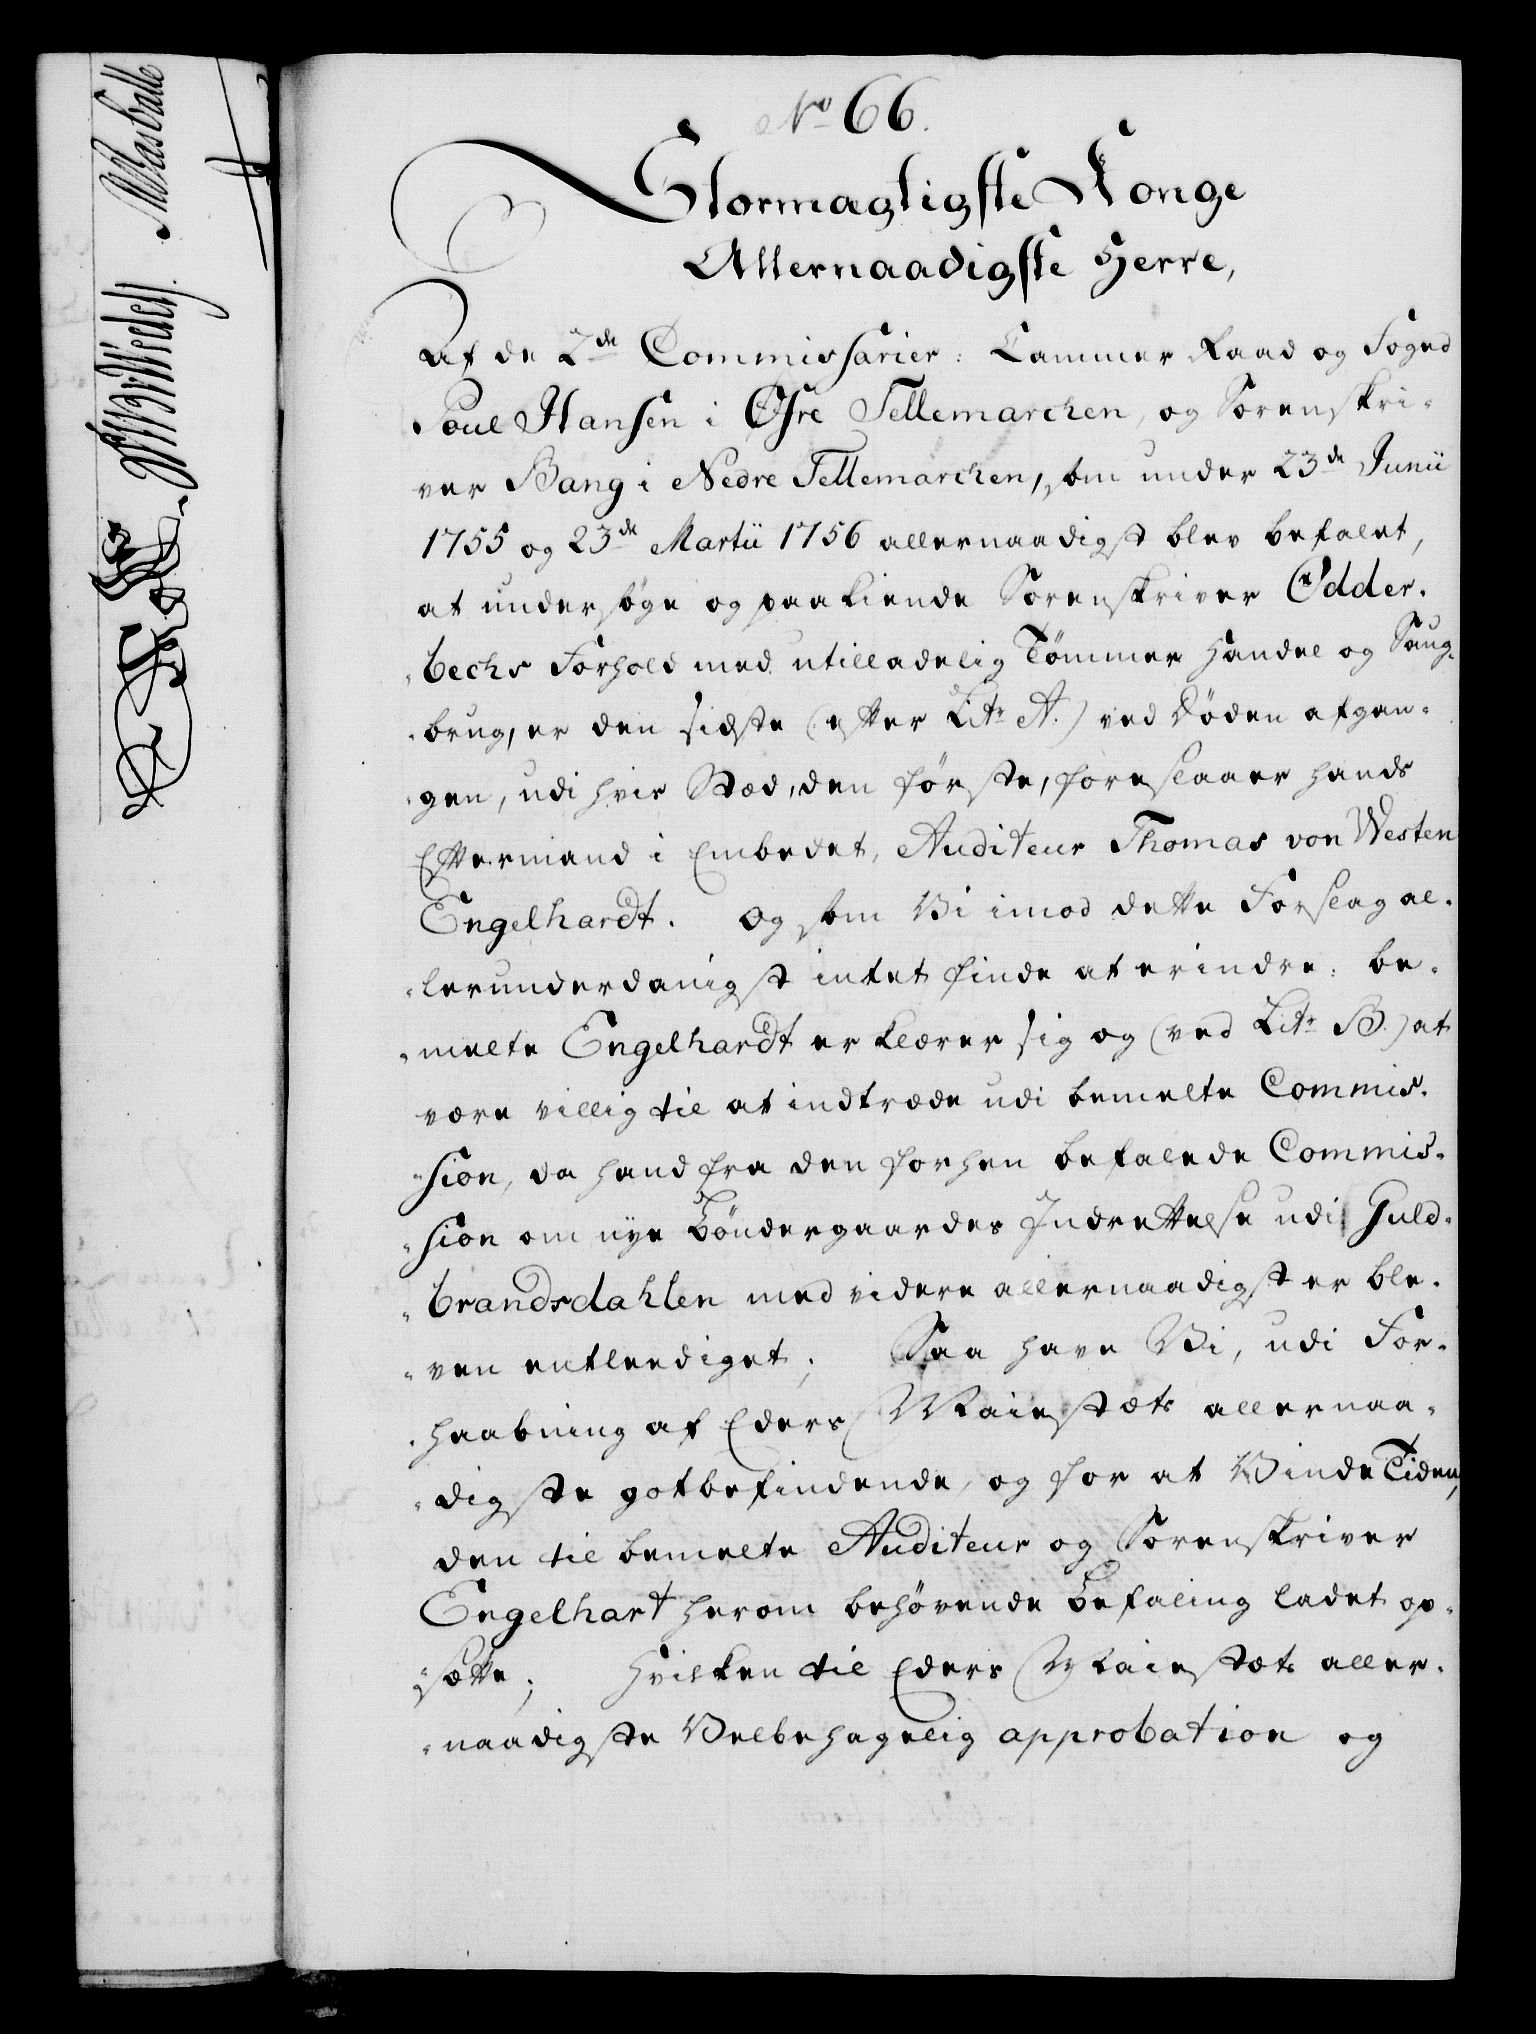 No 66.
Stormagtigste Konge
Allernaadigste Herre,
Af de 2de Commissarier: Cammer Raad og Foged
Poul Hansen i Øfre Tellemarchen, og Sorenskri-
ver Bang i Nedre Tellemarchen, som under 23de Junii
1755 og 23de Martii 1756 allernaadigst blev befalet,
at undersøge og paakiende Sorenskriver Odder-
bechs Forhold med utilladelig Tømmer Handel og Saug-
brug, er den sidste (efter Litr A.) ved Døden afgan-
gen, udi hvis Stæd, den første, foreslaaer hands
Eftermand i Embedet, Auditeur Thomas von Westen
Engelhardt. Og som Vi imod dette Forslag al-
lerunderdanigst intet finde at erindre: be-
melte Engelhardt erklærer sig og (ved Litr B.) at
være villig til at indtræde udi bemelte Commis-
sion, da hand fra den forhen befalede Commis-
sion om nye Bøndergaardes Indrettelse udi Guld-
brandsdahlen med videre allernaadigst er ble-
ven entlediget; Saa have Vi, udi For-
haabning af Eders Maiestæts allernaa-
digste gotbefindende, og for at Vinde Tiden,
den til bemelte Auditeur og Sorenskriver
Engelhart herom behørende Befaling ladet op-
sætte; Hvilken til Eders Maiestæts aller-
naadigste Velbehagelig approbation og